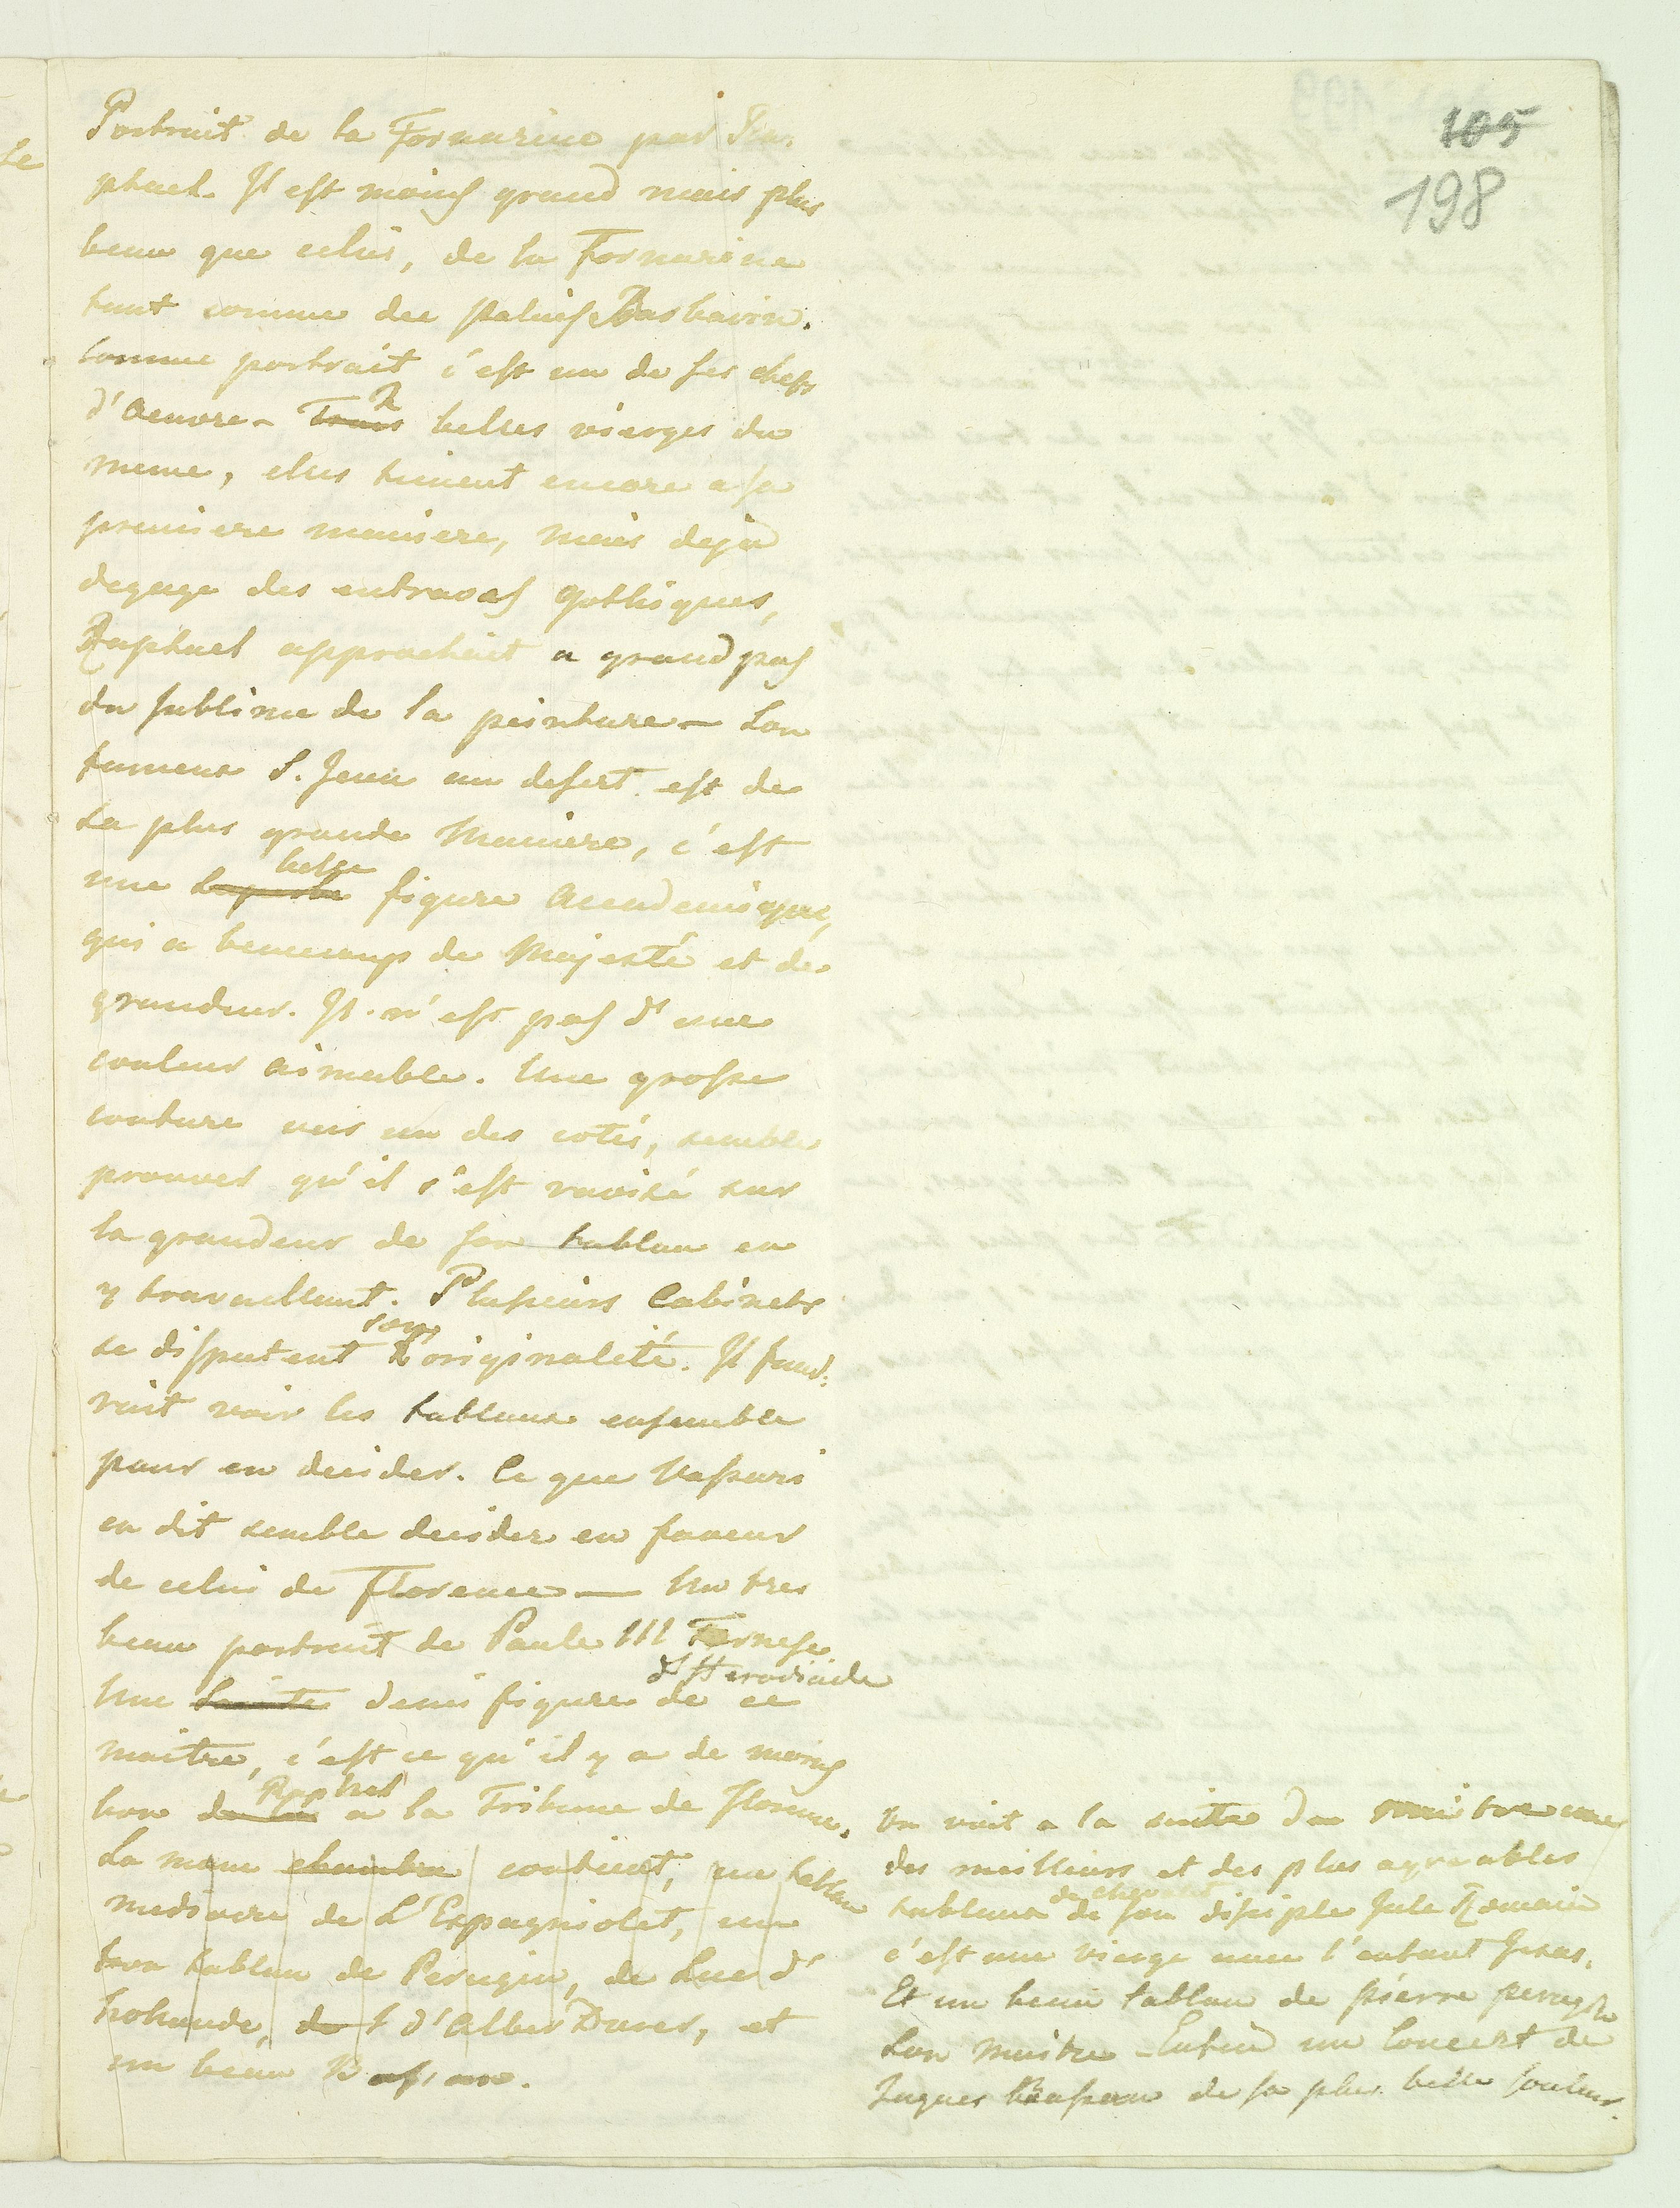 105
198
Portrait de la Fornarine par Ra,
phael. Il est moins grand mais plus
beau que celui, de la Fornarine
tant connue du palais Barbarin.
comme portrait c'est un de ses chefs
d'Aeuvre. ~~Trois~~ 2 belles vierges du
meme, elles tienent encore a sa
premiere maniere, mais deja
degage des entraves gothiques,
Raphael approchait a grand pas
du sublime de la peinture — Son
fameux S. Jean au desert est de
sa plus grande Maniere, c'est
une belle figure Academique,
qui a beaucoup de Majesté et de
grandeur. Il n'est pas d'une
couleur aimable. Une grosse
couture vers un des cotés, semble
prouver qu'il s'est ravisé sur
la grandeur de son tableau en
y travaillant. Plusieurs Cabinets
se disputent son originalité. Il faud:
rait voir les tableaux ensemble
pour en decider. Ce que Vasari
en dit semble decider en faveur
de celui de Florence — Un tres
beau portrait de Paule III Farnese
Une ~~Sainte~~ demi figure d'Herodiade de ce
maitre, c'est ce qu'il y a de moins
bon ~~de lui~~ Raphael a la Tribune de Florence.
La meme ~~chambre~~ contient, un tableau
mediocre de L'Espagniolet, un
bon tableau de Perugin, de Luc d'
hollande, ~~de~~ d'Alber Durer, et
un beau Bassan.
On voit a la suite du maitre un
des meilleurs et des plus agreables
tableaux de chevalet de son disciple Jule Romain
c'est une vierge avec l'enfant Jesus.
Et un beau tableau de pierre perugin
Son Maitre — Enfin un Concert de
Jaques Bassan de sa plus belle couleur.